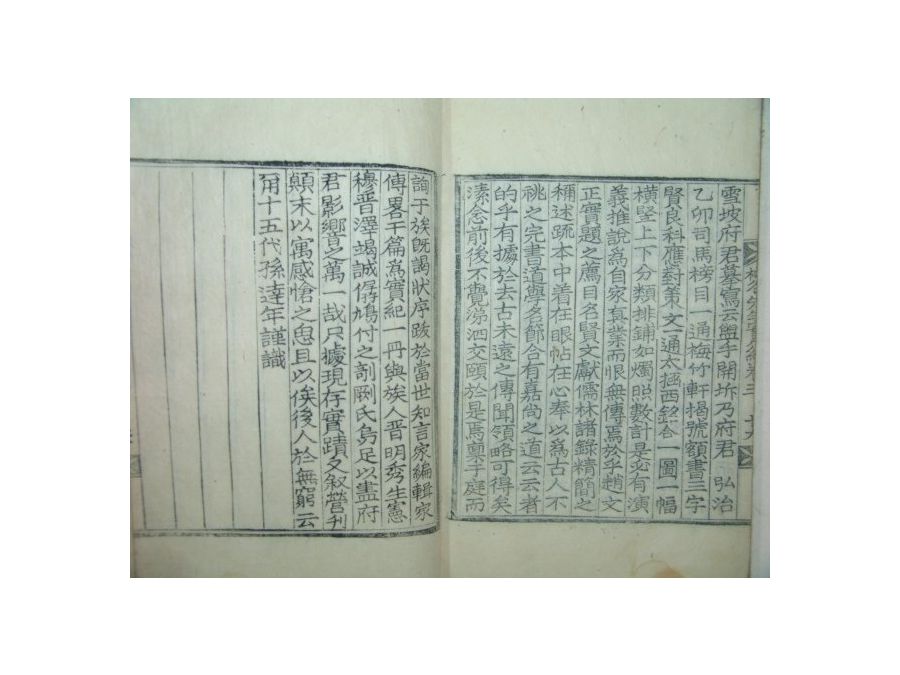 雪坡府君墓寫云盥手開坼乃府君 弘治
乙卯司馬榜目一通梅竹軒揭號額書三字
賢良科應對策文一通太極西銘合一圖一幅
橫竪上下分類排鋪如燭照數計是必有演
義推說爲自家眞業而恨無傳焉於乎趙文
正實題之薦目名賢文獻儒林諸錄精簡之
稱述疏本中着在眼帖在心奉以爲古人不
祧之完書道學名節合有嘉尙之道云云者
的乎有據於去古未遠之傳聞領略可得矣
溱念前後不覺涕泗交頤於是焉稟乎庭而
詢于族旣謁狀序跋於當世知言家編輯家
傳畧干篇爲實紀一冊與族人晋明秀生憲
穆晋澤竭誠僝鳩付之剞劂氏烏足以盡府
君影響之萬一哉只據現存實蹟又叙營刊
顚末以寓感愴之思且以俟後人於無窮云
甭十五代孫達年謹識